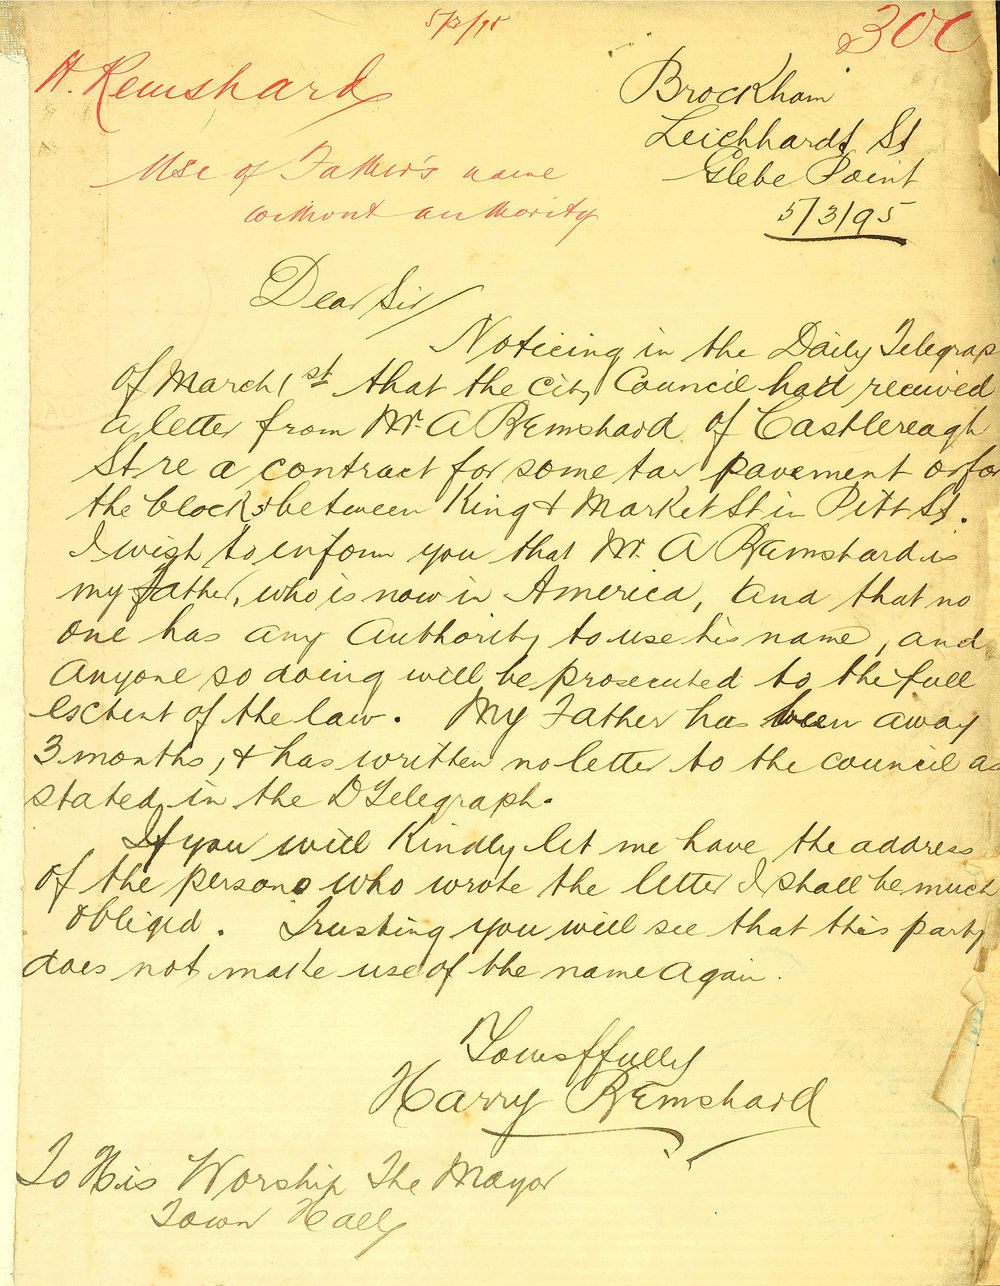 5/3/95
300
H. Remshard
Use of Father's name
without authority
Brockham
Leichhardt St
Glebe Point
5/3/95
Dear Sir/
Noticing in the Daily Telegrap
of March 1st that the City Council had received
a letter from Mr. A Remshard of Castlereagh
St re a contract for some tar pavement or for
the blocks between King & Market St in Pitt St.
I wish to inform you that Mr. A Remshard is
my father, who is now in America, and that no
one has any Authority to use his name, and
anyone so doing will be prosecuted to the full
extent of the law. My Father has been away
3 months, & has written no letter to the council as
stated in the D Telegraph.
If you will kindly let me have the address
of the person who wrote the letter I shall be much
obliged. Trusting you will see that this party
does not make use of the name again.
Yours ffully
Harry Remshard
To His Worship The Mayor
Town Hall